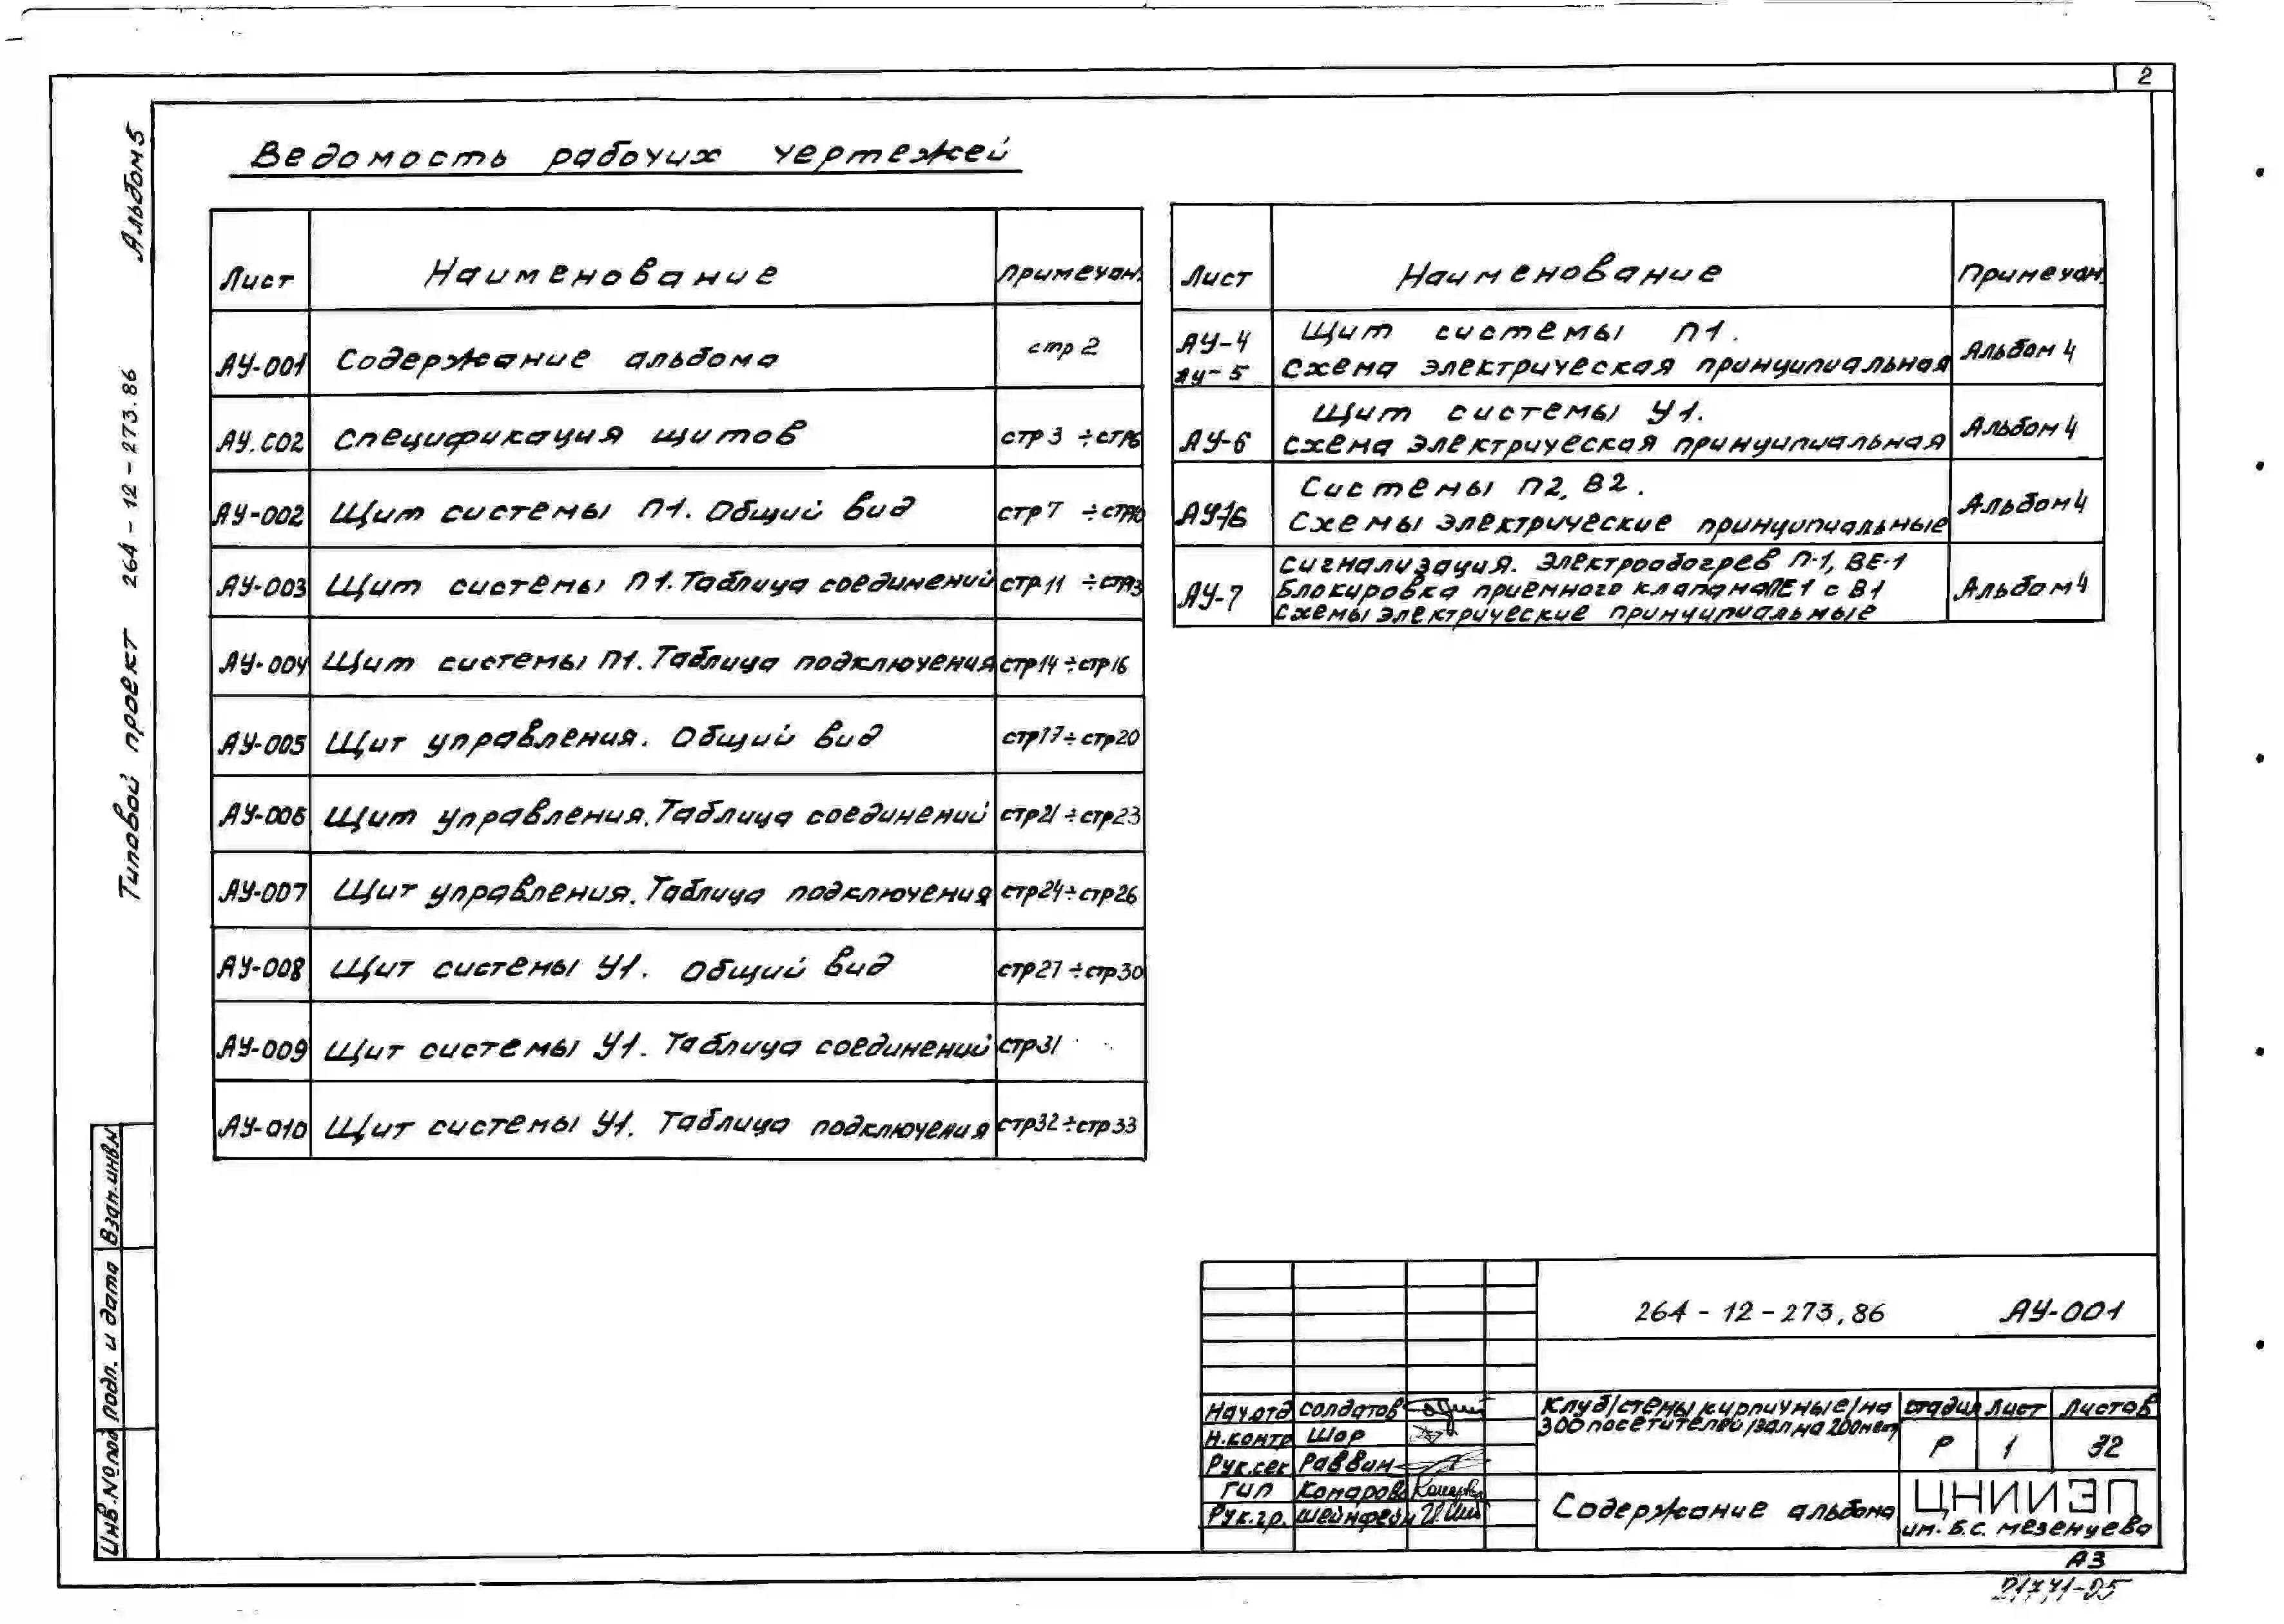 2
Альбом 5
Типовой проект 264-12-273.86
Ведомость рабочих чертежей
Лист Наименование Примечан.
АУ-001 Содержание альбома стр 2
АУ.С02 Спецификация щитов стр 3 ÷ стр6
АУ-002 Щит системы П1. Общий вид стр 7 ÷ стр10
АУ-003 Щит системы П1. Таблица соединений стр.11 ÷ стр13
АУ-004 Щит системы П1. Таблица подключения стр14 ÷ стр16
АУ-005 Щит управления. Общий вид стр17 ÷ стр20
АУ-006 Щит управления. Таблица соединений стр21 ÷ стр23
АУ-007 Щит управления. Таблица подключения стр24 ÷ стр26
АУ-008 Щит системы У1. Общий вид стр27 ÷ стр30
АУ-009 Щит системы У1. Таблица соединений стр31
АУ-010 Щит системы У1. Таблица подключения стр32 ÷ стр33
Лист Наименование Примечан.
АУ-4 Щит системы П1.
АУ-5 Схема электрическая принципиальная Альбом 4
Щит системы У1.
АУ-6 Схема электрическая принципиальная Альбом 4
Системы П2, В2.
Схемы электрические принципиальные Альбом 4
Сигнализация. Электрообогрев П-1, ВЕ-1
АУ-7 Блокировка приемного клапана ПЕ1 с В1 Альбом 4
Схемы электрические принципиальные
Взам.инв.N
Подп. и дата
Инв.№подл
264-12-273,86 АУ-001
Нач.отд Солдатов
Н.контр Шор
Рук.сек Раввин
ГИП Комаров
Рук.гр. Шейнфейн
Клуб/стены кирпичные/на
300 посетителей/зал на 200мест/
Стадия Лист Листов
Р 1 32
Содержание альбома
ЦНИИЭП
им. Б.С. Мезенцева
А3
21771-05